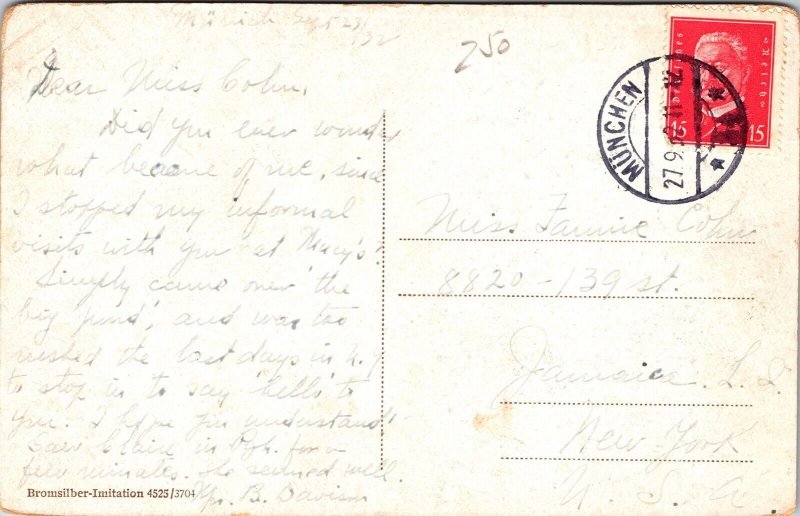 Munich Sept 23
'32
250
Dear Miss Cohn,
Did you ever wonder
what became of me, since
I stopped my informal
visits with you at Macy's?
Simply came over 'the
big pond', and was too
rushed the last days in N.Y
to stop in to say 'hello' to
you. I hope you understand!
Saw Claire in for a
few minutes. She seemed well.
B. Davison
Bromsilber-Imitation 4525/3704
Deutsches Reich
15 15
MÜNCHEN
27.9. 11-12
Miss Fannie Cohn
8820-139 st.
Jamaica. L. I.
New York
U. S. A